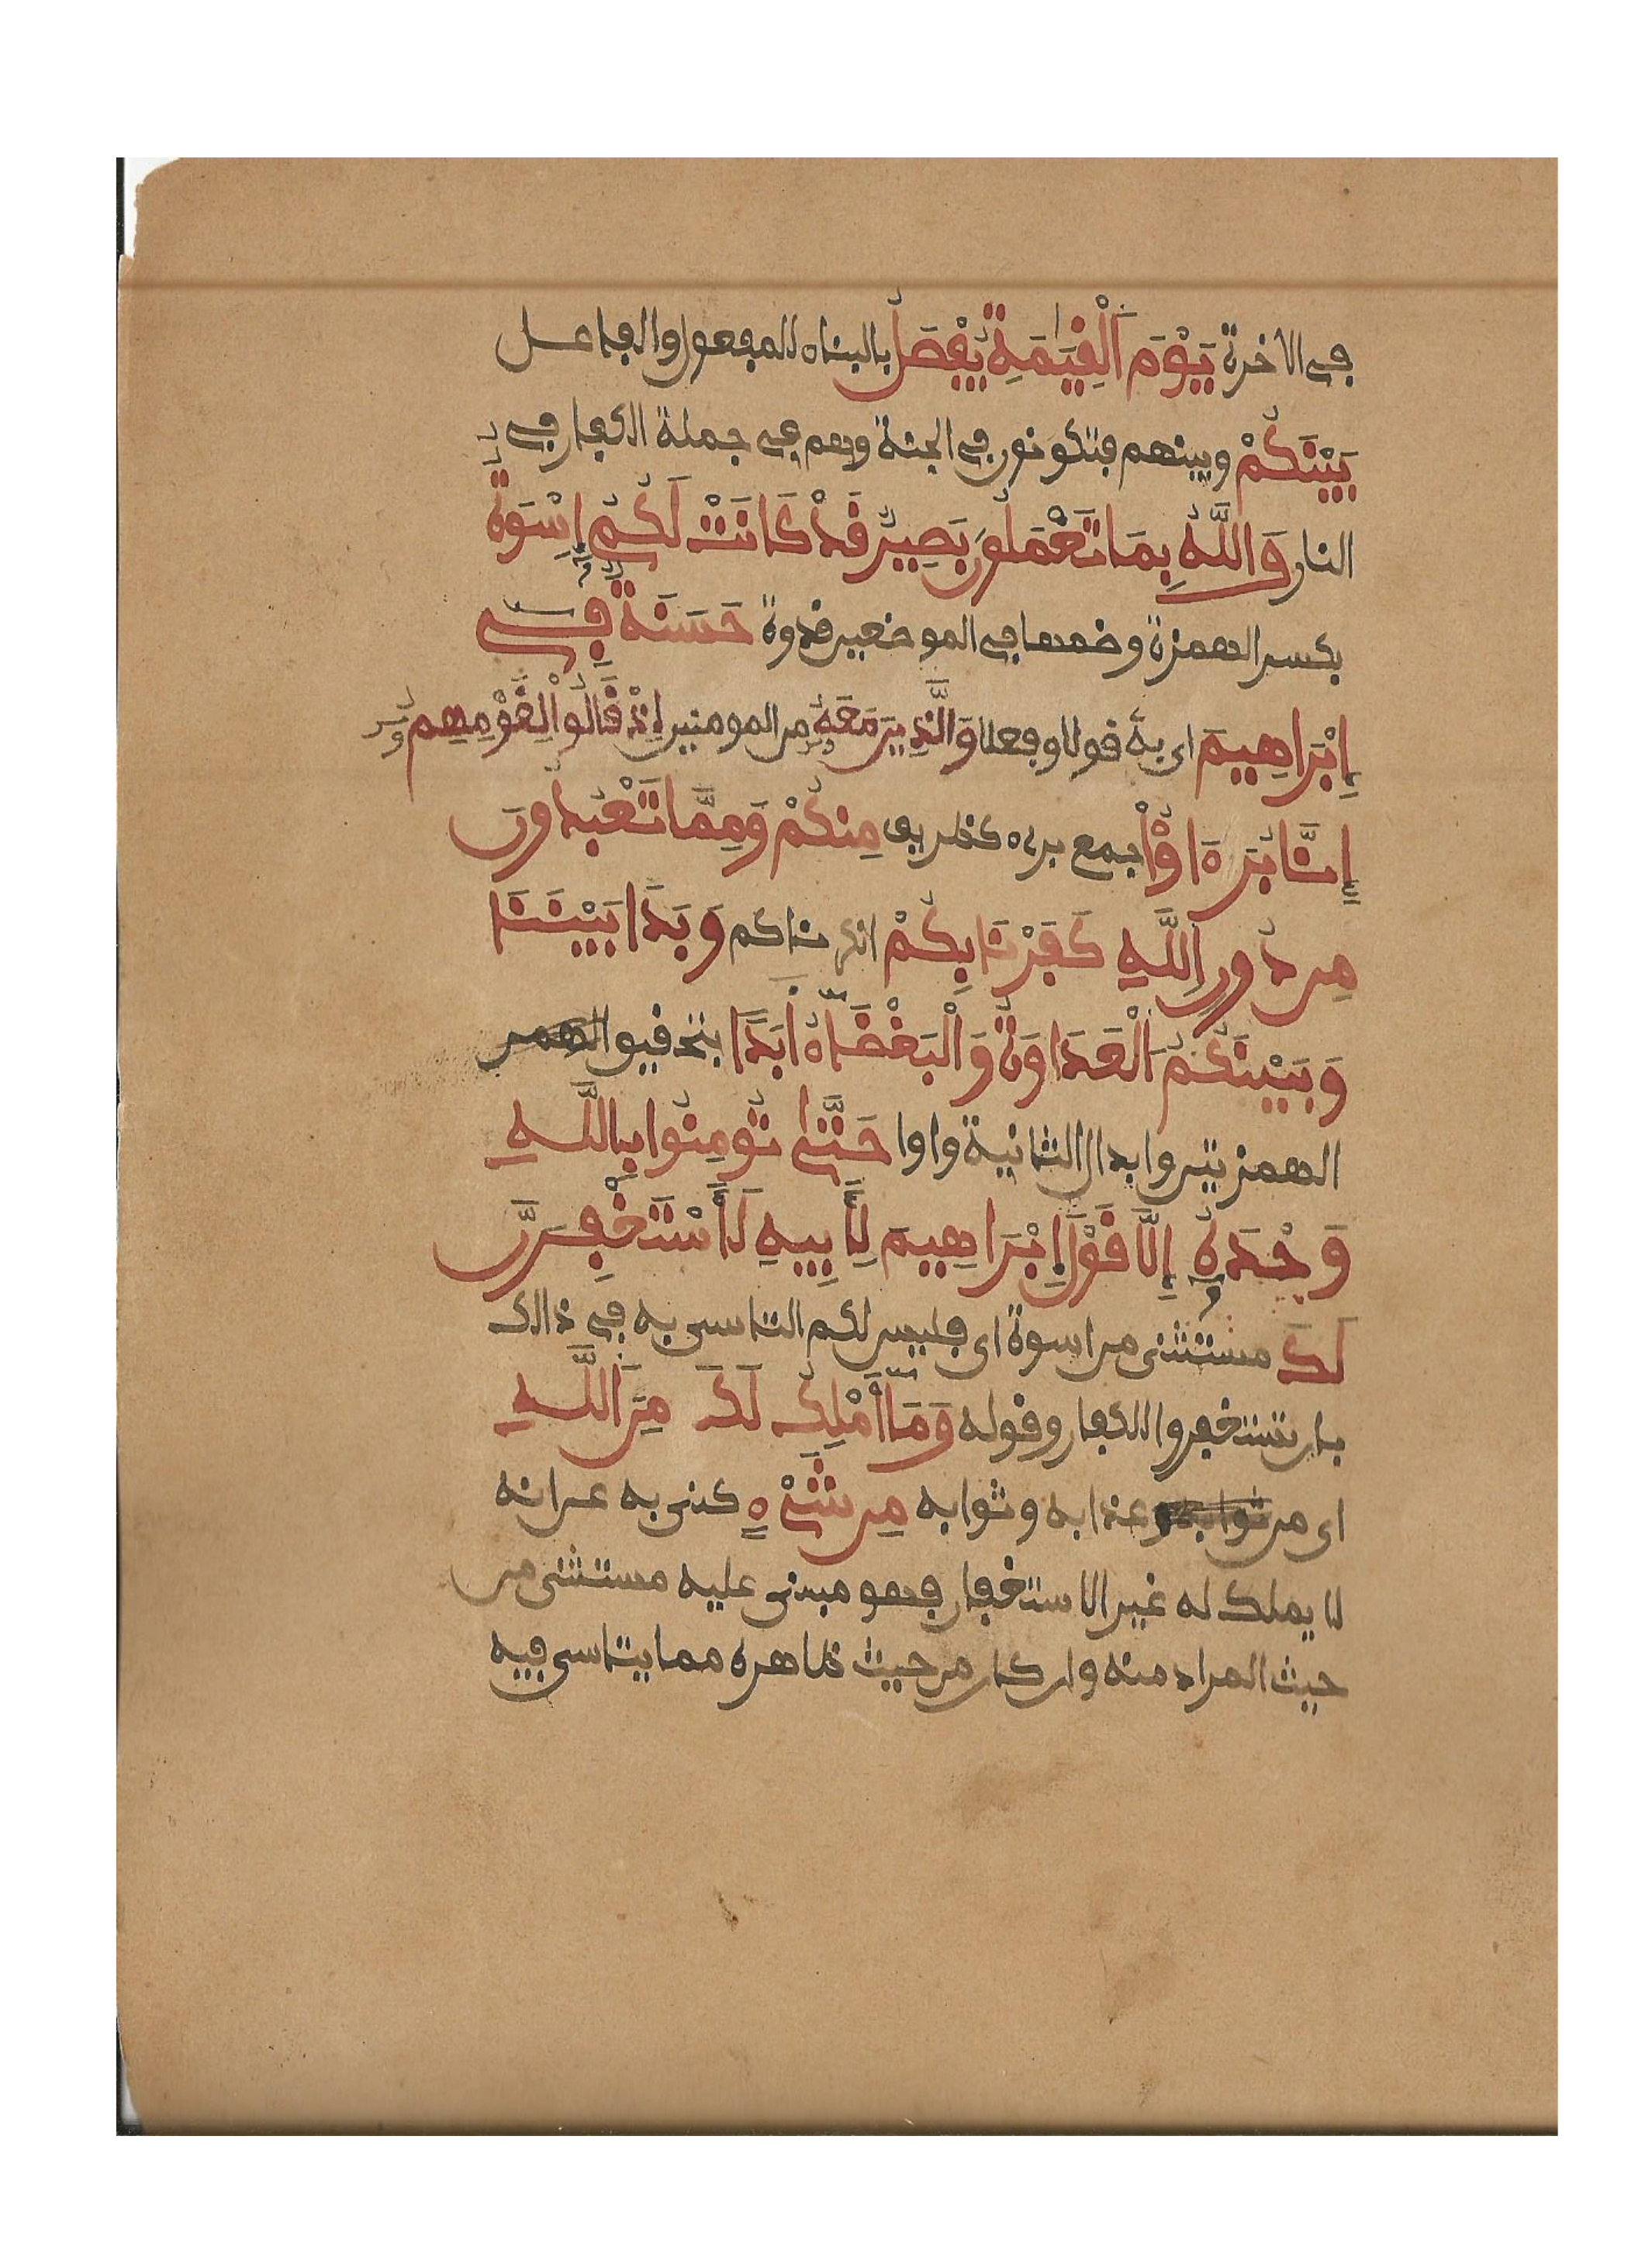 في الاخرة يَوْمَ اَلْقِيَمَةِ يُفْصَلُ بالبناء للمفعول والفاعل
بَيْنَكُمْ وبينهم فتكونون في الجنة وهم في جملة الكفار في
النار وَاللَّهُ بِمَا تَعْمَلُونَ بَصِيرٌ قَدْ كَانَتْ لَكُمْ إِسْوَةٌ
بكسر الهمزة وضمها في الموضعين قدوة حَسَنَةٌ فِي
إِبْرَاهِيمَ اى به قولا وفعلا وَالَّذِينَ مَعَهُ من المومنين إِذْ قَالُواْ لِقَوْمِهِمُ
إِنَّا بُرَءَاؤُاْ جمع برىء كظريف مِنكُمْ وَمِمَّا تَعْبُدُونَ
مِن دُونِ اِللَّهِ كَفَرْنَا بِكُمْ انكرناكم وَبَدَا بَيْنَنَا
وَبَيْنَكُمُ اَلْعَدَاوَةُ وَالْبَغْضَاءُ اَبَدًا بتحقيق الهمز
الهمزتين وابدال الثانية واوا حَتَّى تُومِنُوا بِاللَّهِ
وَحْدَهُ إِلَّا قَوْلَ إِبْرَاهِيمَ لِأَبِيهِ لَأَسْتَغْفِرَنَّ
لَكَ مستثنى من اسوة اى فليس لكم التاسى به في ذالك
بان تستغفروا للكفار وقوله وَمَا أَمْلِكُ لَكَ مِنَ اَللَّهِ
اى من ثوابه عذابه وثوابه مِن شَيْءٍ كنى به عن انه
لا يملك له غير الاستغفار فهو مبنى عليه مستثنى من
حيث المراد منه وان كان من حيث ظاهره مما يتاسى فيه